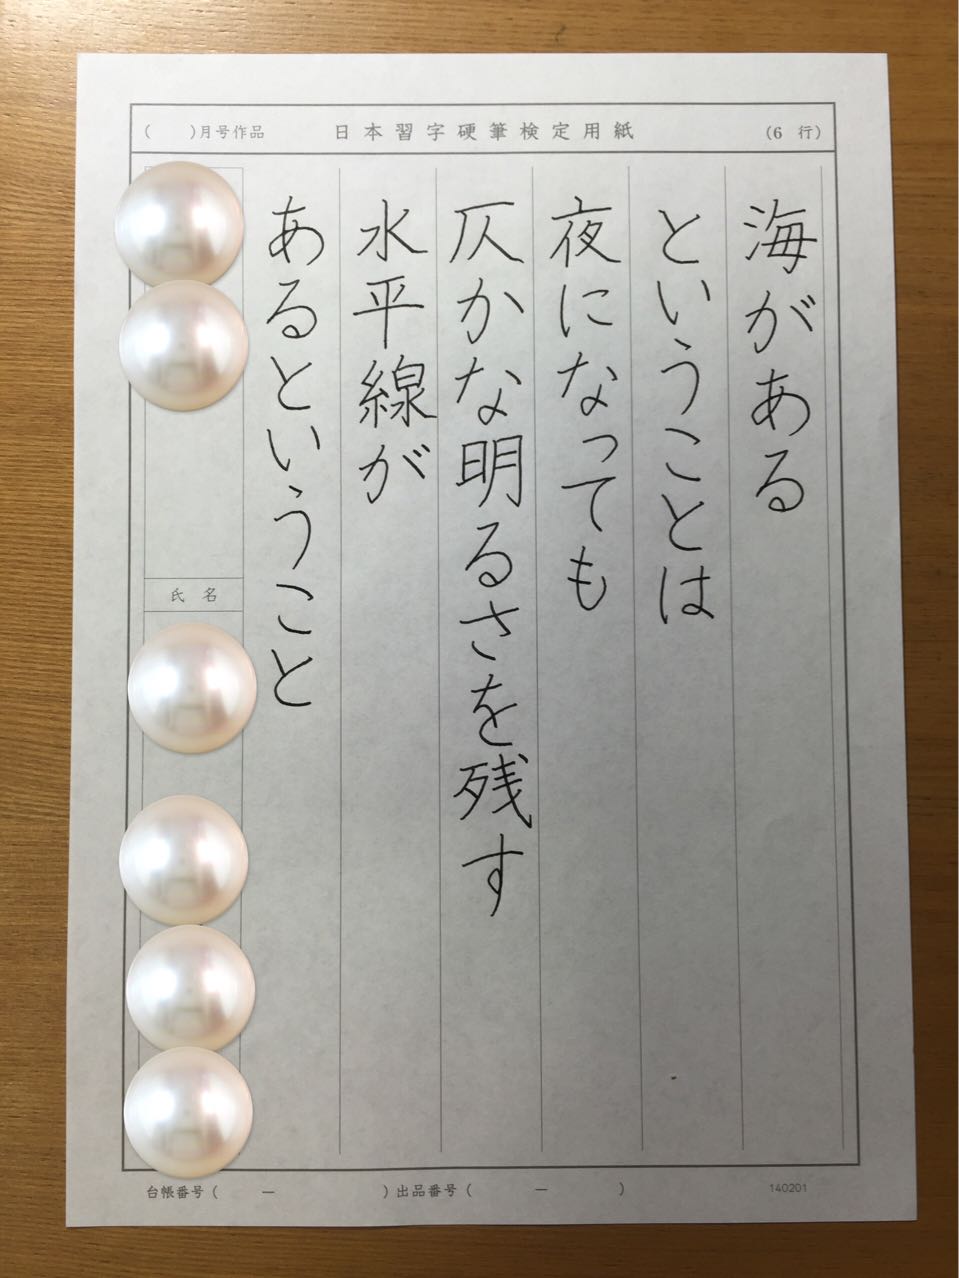 ( )月号作品 日本習字硬筆検定用紙 (6 行)
海がある
ということは
夜になっても
仄かな明るさを残す
水平線が
あるということ
氏 名
台帳番号( ー )出品番号( ー )
140201